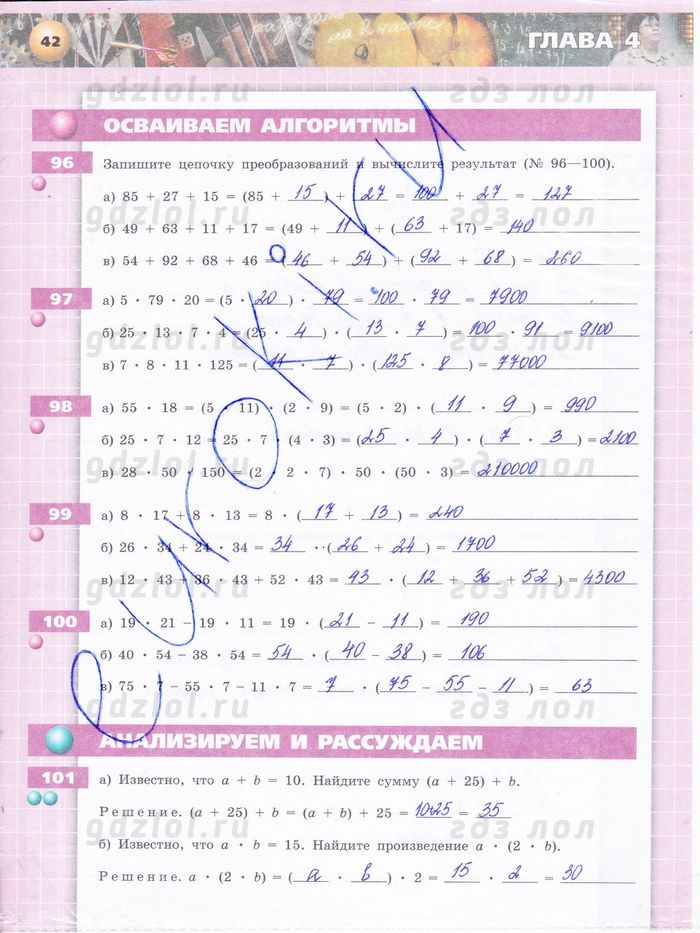 разрезать
на 2 части
42
ГЛАВА 4
gdzlol.ru гдз лол
ОСВАИВАЕМ АЛГОРИТМЫ
96 Запишите цепочку преобразований и вычислите результат (№ 96—100).
а) 85 + 27 + 15 = (85 + 15) + (27 = 100 + 27 = 127
gdzlol.ru гдз лол
б) 49 + 63 + 11 + 17 = (49 + 11) + (63 + 17) = 140
в) 54 + 92 + 68 + 46 = (46 + 54) + (92 + 68) = 260
97 а) 5 · 79 · 20 = (5 · 20) · 79 = 100 · 79 = 7900
б) 25 · 13 · 7 · 4 = (25 · 4) · (13 · 7) = 100 · 91 = 9100
gdzlol.ru гдз лол
в) 7 · 8 · 11 · 125 = (11 · 7) · (125 · 8) = 77000
98 а) 55 · 18 = (5 · 11) · (2 · 9) = (5 · 2) · (11 · 9) = 990
б) 25 · 7 · 12 = 25 · 7 · (4 · 3) = (25 · 4) · (7 · 3) = 2100
gdzlol.ru гдз лол
в) 28 · 50 · 150 = (2 · 2 · 7) · 50 · (50 · 3) = 210000
99 а) 8 · 17 + 8 · 13 = 8 · (17 + 13) = 240
б) 26 · 34 + 24 · 34 = 34 · (26 + 24) = 1700
в) 12 · 43 + 36 · 43 + 52 · 43 = 43 · (12 + 36 + 52) = 4300
gdzlol.ru гдз лол
100 а) 19 · 21 − 19 · 11 = 19 · (21 − 11) = 190
б) 40 · 54 − 38 · 54 = 54 · (40 − 38) = 106
в) 75 · 7 − 55 · 7 − 11 · 7 = 7 · (75 − 55 − 11) = 63
gdzlol.ru гдз лол
АНАЛИЗИРУЕМ И РАССУЖДАЕМ
101 а) Известно, что a + b = 10. Найдите сумму (a + 25) + b.
Решение. (a + 25) + b = (a + b) + 25 = 10+25 = 35
gdzlol.ru гдз лол
б) Известно, что a · b = 15. Найдите произведение a · (2 · b).
Решение. a · (2 · b) = (a · b) · 2 = 15 · 2 = 30
eurokiki.ru